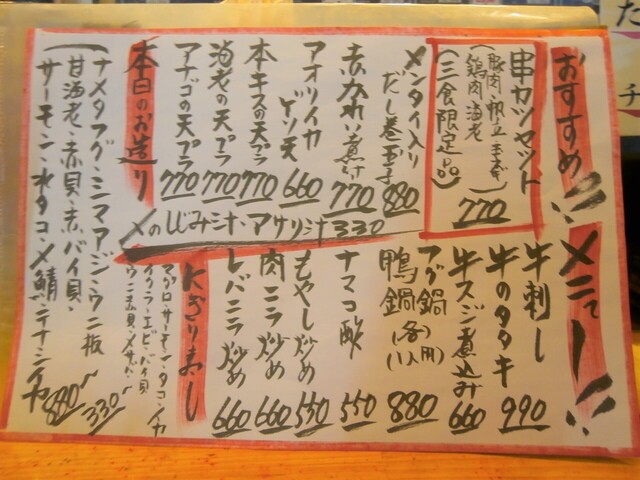 おすすめメニュー!!
串カツセット
(豚肉、帆立、玉ネギ
鶏肉、海老)
(三食限定品)
770
メンタイ入り
だし巻玉子 880
赤かれい煮付 770
アオリイカ
ゲソ天 660
本キスの天プラ 770
海老の天プラ 770
アナゴの天プラ 770
〆のしじみ汁、アサリ汁 330
牛刺し
牛のタタキ 990
牛スジ煮込み 660
フグ鍋
鴨鍋 (各1人用) 880
ナマコ酢 550
もやし炒め 550
肉ニラ炒め 660
レバニラ炒め 660
にぎり寿し
マグロ・サーモン・タコ・イカ
イクラ・エビ・バイ貝
ウニ・赤貝・〆サバ
330〜
本日のお造り
ナメタフグ・ミニマアジ・ウニ板
甘海老・赤貝・赤バイ貝・
サーモン・水タコ・〆鯖・
880〜
た
チ